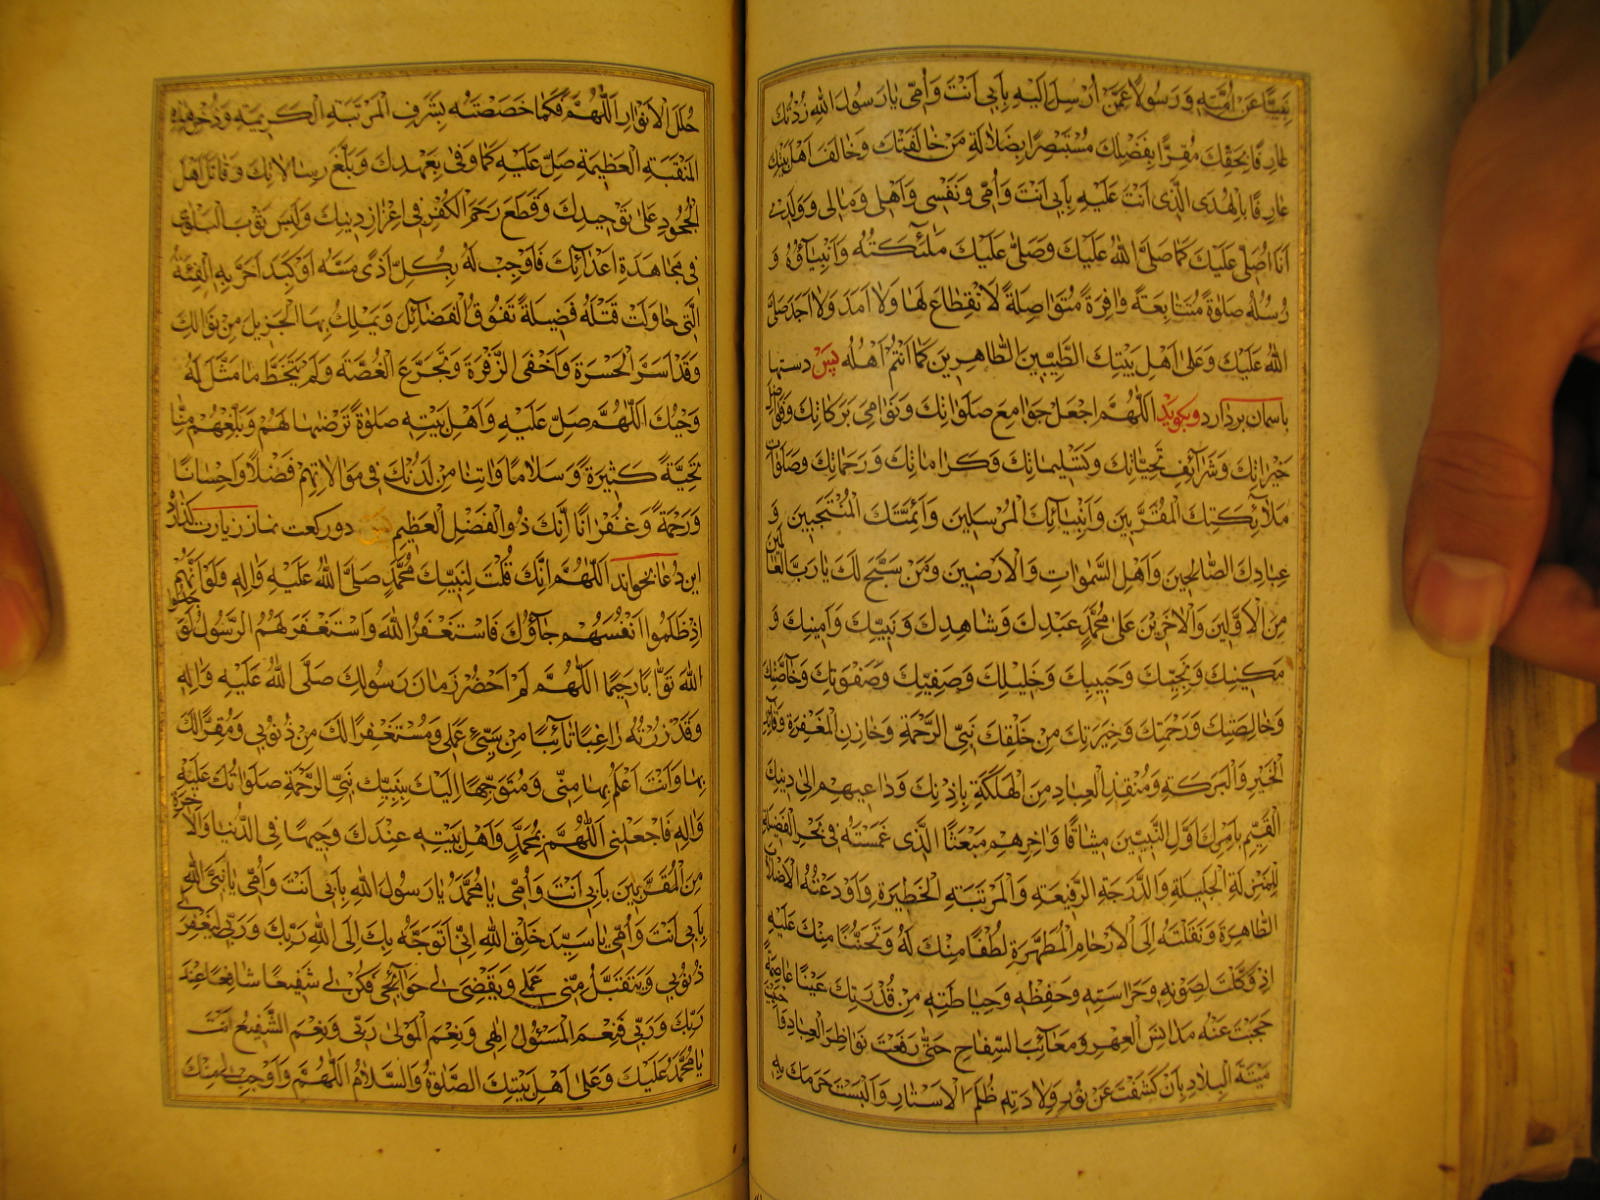 نَبِيًّا عَنْ اُمَّتِهِ وَ رَسُولًا عَمَّنْ اَرْسَلَ اِلَيْهِ بِاَبى اَنْتَ وَ اُمّى يا رَسُولَ اللهِ زُرْتُكَ
عارِفًا بِحَقِّكَ مُقِرًّا بِفَضْلِكَ مُسْتَبْصِرًا بِضَلالَةِ مَنْ خالَفَكَ وَ خالَفَ اَهْلَ بَيْتِكَ
عارِفًا بِالْهُدَى الَّذى اَنْتَ عَلَيْهِ بِاَبى اَنْتَ وَ اُمّى وَ نَفْسى وَ اَهْلى وَ مالى وَ وَلَدى
اَنَا اُصَلّى عَلَيْكَ كَما صَلَّى اللهُ عَلَيْكَ وَ صَلّى عَلَيْكَ مَلٰئِكَتُهُ وَ اَنْبِيآؤُهُ وَ
رُسُلُهُ صَلوةً مُتَتابِعَةً وافِرَةً مُتَواصِلَةً لَا انْقِطاعَ لَها وَلا اَمَدَ وَلا اَجَلَ صَلَّى
اللهُ عَلَيْكَ وَ عَلى اَهْلِ بَيْتِكَ الطَّيِّبينَ الطّاهِرينَ كَما اَنْتُمْ اَهْلُهُ پس دستها
باسمان بردارد و بگويد اَللّٰهُمَّ اجْعَلْ جَوامِعَ صَلَواتِكَ وَ نَوامِىَ بَرَكاتِكَ وَ فَواضِلَ
خَيْراتِكَ وَ شَرآئِفَ تَحِيّاتِكَ وَ تَسْليماتِكَ وَ كَراماتِكَ وَ رَحَماتِكَ وَ صَلَواتِ
مَلآئِكَتِكَ الْمُقَرَّبينَ وَ اَنْبِيآئِكَ الْمُرْسَلينَ وَ اَئِمَّتِكَ الْمُنْتَجَبينَ وَ
عِبادِكَ الصّالِحينَ وَ اَهْلِ السَّمٰواتِ وَ الْاَرَضينَ وَ مَنْ سَبَّحَ لَكَ يا رَبَّ الْعالَمينَ
مِنَ الْاَوَّلينَ وَ الْاٰخِرينَ عَلى مُحَمَّدٍ عَبْدِكَ وَ شاهِدِكَ وَ نَبِيِّكَ وَ اَمينِكَ وَ
مَكينِكَ وَ نَجِيِّكَ وَ حَبيبِكَ وَ خَليلِكَ وَ صَفِيِّكَ وَ صَفْوَتِكَ وَ خآصَّتِكَ
وَ خالِصَتِكَ وَ رَحْمَتِكَ وَ خِيَرَتِكَ مِنْ خَلْقِكَ نَبِىِّ الرَّحْمَةِ وَ خازِنِ الْمَغْفِرَةِ وَ قآئِدِ
الْخَيْرِ وَ الْبَرَكَةِ وَ مُنْقِذِ الْعِبادِ مِنَ الْهَلَكَةِ بِاِذْنِكَ وَ داعيهِمْ اِلى دينِكَ
الْقَيِّمِ بِاَمْرِكَ اَوَّلِ النَّبِيّينَ ميثاقًا وَ اٰخِرِهِمْ مَبْعَثًا الَّذى غَمَسْتَهُ فى بَحْرِ الْفَضيلَةِ
لِلْمَنْزِلَةِ الْجَليلَةِ وَ الدَّرَجَةِ الرَّفيعَةِ وَ الْمَرْتَبَةِ الْخَطيرَةِ وَ اَوْدَعْتَهُ الْاَصْلابَ
الطّاهِرَةَ وَ نَقَلْتَهُ اِلَى الْاَرْحامِ الْمُطَهَّرَةِ لُطْفًا مِنْكَ لَهُ وَ تَحَنُّنًا مِنْكَ عَلَيْهِ
اِذْ وَكَّلْتَ لِصَوْنِهِ وَ حَراسَتِهِ وَ حِفْظِهِ وَ حِياطَتِهِ مِنْ قُدْرَتِكَ عَيْنًا عاصِمَةً
حَجَبْتَ عَنْهُ مَدانِسَ الْعَهْرِ وَ مَعآئِبَ السِّفاحِ حَتّى رَفَعْتَ نَواظِرَ الْعِبادِ وَ اَحْيَيْتَ
مَيْتَةَ الْبِلادِ بِاَنْ كَشَفْتَ عَنْ نُورِ وِلادَتِهِ ظُلَمَ الْاَسْتارِ وَ اَلْبَسْتَ حَرَمَكَ بِهِ
حُلَلَ الْاَنْوارِ اَللّٰهُمَّ فَكَما خَصَصْتَهُ بِشَرَفِ الْمَرْتَبَةِ الْكَريمَةِ وَ ذُخْرِ هٰذِهِ
الْمَنْقَبَةِ الْعَظيمَةِ صَلِّ عَلَيْهِ كَما وَفى بِعَهْدِكَ وَ بَلَّغَ رِسالاتِكَ وَ قاتَلَ اَهْلَ
الْجُحُودِ عَلى تَوْحيدِكَ وَ قَطَعَ رَحِمَ الْكُفْرِ فى اِعْزازِ دينِكَ وَ لَبِسَ ثَوْبَ الْبَلْوى
فى مُجاهَدَةِ اَعْدآئِكَ فَاَوْجِبْ لَهُ بِكُلِّ اَذًى مَسَّهُ اَوْ كَيْدٍ اَحَسَّ بِهِ الْفِئَةِ
الَّتى حاوَلَتْ قَتْلَهُ فَضيلَةً تَفُوقُ الْفَضآئِلَ وَ يَمْلِكُ بِهَا الْجَزيلَ مِنْ نَوالِكَ
وَ قَدْ اَسَرَّ الْحَسْرَةَ وَ اَخْفَى الزَّفْرَةَ وَ تَجَرَّعَ الْغُصَّةَ وَ لَمْ يَتَخَطَّ ما مَثَّلَ لَهُ
وَحْيُكَ اَللّٰهُمَّ صَلِّ عَلَيْهِ وَ اَهْلِ بَيْتِهِ صَلوةً تَرْضٰيها لَهُمْ وَ بَلِّغْهُمْ مِنّا
تَحِيَّةً كَثيرَةً وَ سَلامًا وَ اٰتِنا مِنْ لَدُنْكَ فى مُوالاتِهِمْ فَضْلًا وَ اِحْسانًا
وَ رَحْمَةً وَ غُفْرانًا اِنَّكَ ذُو الْفَضْلِ الْعَظيمِ پس دو ركعت نماز زيارت گذارد
اين دعا بخواند اَللّٰهُمَّ اِنَّكَ قُلْتَ لِنَبِيِّكَ مُحَمَّدٍ صَلَّى اللهُ عَلَيْهِ وَ اٰلِهِ وَ لَوْ اَنَّهُمْ
اِذْ ظَلَمُوا اَنْفُسَهُمْ جآؤُكَ فَاسْتَغْفَرُوا اللهَ وَ اسْتَغْفَرَ لَهُمُ الرَّسُولُ لَوَجَدُوا
اللهَ تَوّابًا رَحيمًا اَللّٰهُمَّ لَمْ اَحْضُرْ زَمانَ رَسُولِكَ صَلَّى اللهُ عَلَيْهِ وَ اٰلِهِ
وَ قَدْ زُرْتُهُ راغِبًا تآئِبًا مِنْ سَيِّئِ عَمَلى وَ مُسْتَغْفِرًا لَكَ مِنْ ذُنُوبى وَ مُقِرًّا لَكَ
بِها وَ اَنْتَ اَعْلَمُ بِها مِنّى وَ مُتَوَجِّهًا اِلَيْكَ بِنَبِيِّكَ نَبِىِّ الرَّحْمَةِ صَلَواتُكَ عَلَيْهِ
وَ اٰلِهِ فَاجْعَلْنى اَللّٰهُمَّ بِمُحَمَّدٍ وَ اَهْلِ بَيْتِهِ عِنْدَكَ وَجيهًا فِى الدُّنْيا وَ الْاٰخِرَةِ
مِنَ الْمُقَرَّبينَ بِاَبى اَنْتَ وَ اُمّى يا مُحَمَّدُ يا رَسُولَ اللهِ بِاَبى اَنْتَ وَ اُمّى يا نَبِىَّ اللهِ
بِاَبى اَنْتَ وَ اُمّى يا سَيِّدَ خَلْقِ اللهِ اِنّى اَتَوَجَّهُ بِكَ اِلَى اللهِ رَبِّكَ وَ رَبّى لِيَغْفِرَ لى
ذُنُوبى وَ يَتَقَبَّلَ مِنّى عَمَلى وَ يَقْضِىَ لى حَوآئِجى فَكُنْ لى شَفيعًا شافِعًا عِنْدَ
رَبِّكَ وَ رَبّى فَنِعْمَ الْمَسْئُولُ اِلٰهى وَ نِعْمَ الْمَوْلى رَبّى وَ نِعْمَ الشَّفيعُ اَنْتَ
يا مُحَمَّدُ عَلَيْكَ وَ عَلى اَهْلِ بَيْتِكَ الصَّلوةُ وَ السَّلامُ اَللّٰهُمَّ وَ اَوْجِبْ لى مِنْكَ